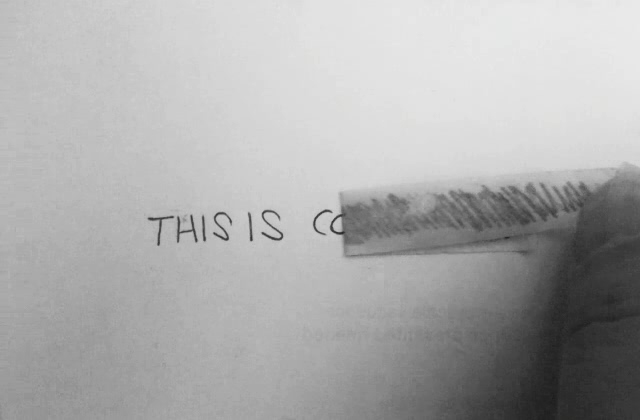 THIS IS CO